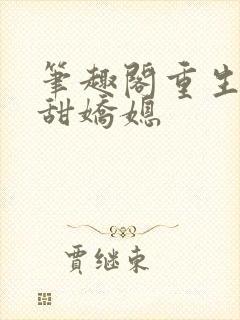 筆趣閣重生
甜嬌媳
賈继東